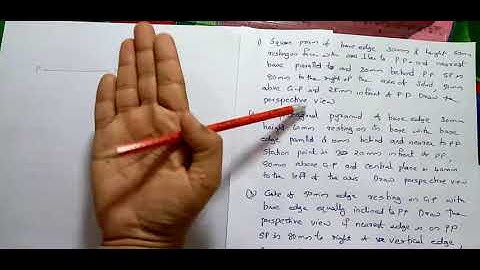 P
1) Square prism of base edge 30mm & height 60mm
resting on face with axis to PP and nearest
base parallel to and 20mm behind PP. SP is
80mm to the right of the of solid, 90mm
above GP and 25mm infront of PP. Draw the
perspective view
pyramid of base edge 30mm
height 60mm resting on its base with base
edge parallel & 10mm behind and nearer to PP
Station point is 20mm infront of PP,
80mm above GP and central plane is 40mm
to the left of the axis Draw perspective view
Cube of 40mm edge resting on GP with
base edge equally inclined to PP Draw the
perspective view if nearest edge is on PP
SP is 80mm to right of vertical edge,